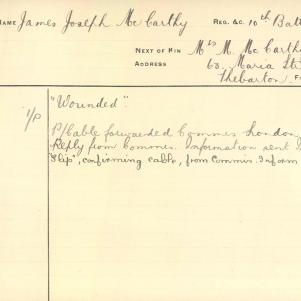 NAME James Joseph McCarthy REG. &C. 10th Batt
NEXT OF KIN Mrs M. McCarthy
ADDRESS 63, Maria St
Thebarton
1/P "Wounded".
P/Cable forwarded Commns London
Reply from Commns. Information sent
Slip", confirming cable, from Commis. Inform